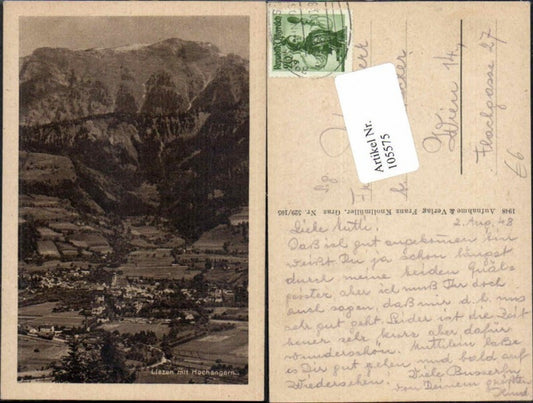 Liezen mit Hochangern
Artikel Nr.
105575
Wien 14,
Flachgasse 27
66
1948 Aufnahme & Verlag Franz Knollmüller, Graz Nr. 529/105
2. Aug. 48
Liebe Mutti,
Daß ich gut angekommen bin
weißt Du ja schon längst
durch meine beiden
aber ich muß Ihr doch
auch sagen, daß mir d. h. uns
sehr gut geht. Leider ist die Zeit
heuer sehr kurz aber dafür
wunderschön. Muttilein laß
es Dir gut gehen und bald auf
Wiedersehen! Viele Busserln
von Deinem